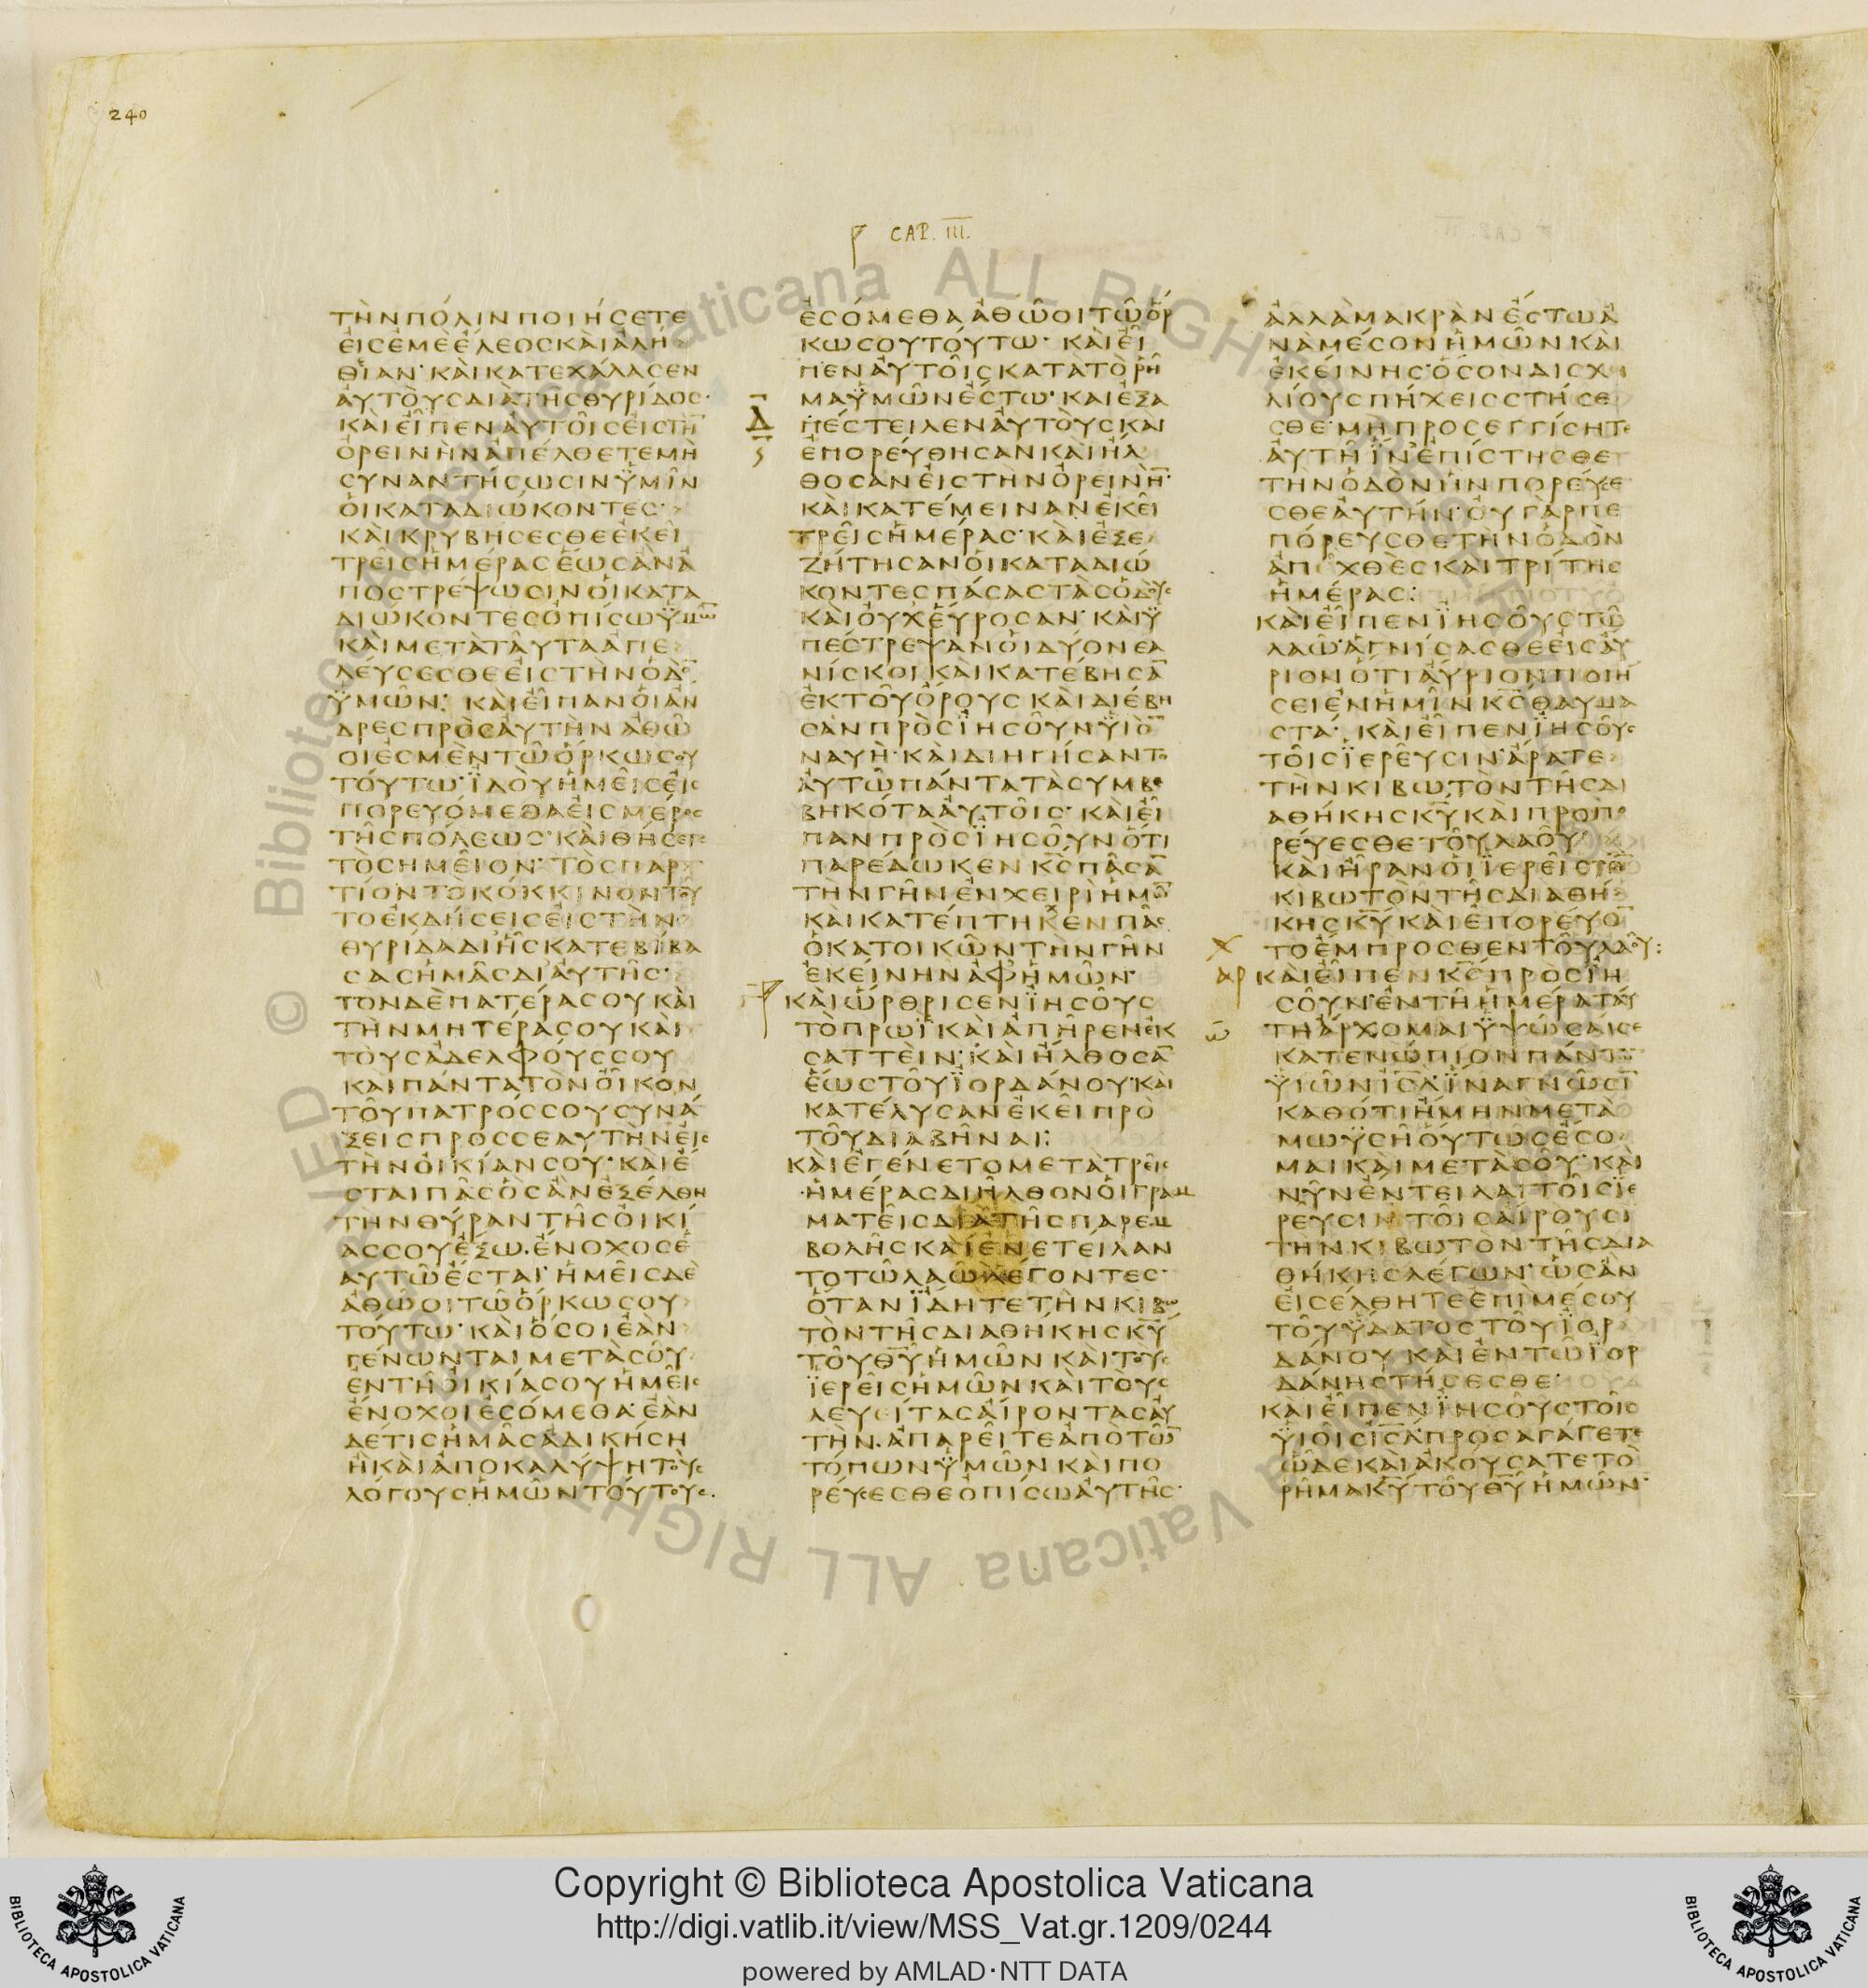 240
CAP. III.
ΤῊΝΠΌΛΙΝΠΟΙΉϹΕΤΕ
ΕἸϹἘΜΕἜΛΕΟϹΚΑῚἈΛΉ
ΘΕΙΑΝ· ΚΑῚΚΑΤΕΧΆΛΑϹΕΝ
ΑΥ̓ΤΟῪϹΔΙᾺΤΗ͂ϹΘΥΡΊΔΟϹ·
ΚΑῚΕἾΠΕΝΑΥ̓ΤΟΙ͂ϹΕἸϹΤῊ̅
ὈΡΕΙΝῊΝἈΠΈΛΘΕΤΕΜῊ
ϹΥΝΑΝΤΉϹΩϹΙΝΫΜΙ͂Ν
ΟἹΚΑΤΑΔΙΏΚΟΝΤΕϹ·
ΚΑῚΚΡΥΒΗϹΕϹΘΕἘΚΕΙ͂
ΤΡΕΙ͂ϹἩΜΈΡΑϹἝΩϹἊΝἈ
ΠΟϹΤΡΈΨΩϹΙΝΟἹΚΑΤΑ
ΔΙΏΚΟΝΤΕϹὈΠΊϹΩΫΜΩ̅
ΚΑῚΜΕΤᾺΤΑΥ͂ΤΑἈΠΕ
ΛΕΎϹΕϹΘΕΕἸϹΤῊΝὉΔῸ̅
ΫΜΩ͂Ν: ΚΑῚΕἾΠΑΝΟἹἌΝ
ΔΡΕϹΠΡῸϹΑΥ̓ΤῊΝἈΘΩ͂
ΟΙἘϹΜΕΝΤΩ͂ὍΡΚΩϹΟΥ
ΤΟΎΤΩ· ΪΔΟῪἩΜΕΙ͂ϹΕἸϹ
ΠΟΡΕΥΌΜΕΘΑΕἸϹΜΈΡΟϹ
ΤΗ͂ϹΠΌΛΕΩϹ· ΚΑῚΘΉϹΕΙϹ
ΤῸϹΗΜΕΙ͂ΟΝ· ΤῸϹΠΑΡ
ΤΊΟΝΤῸΚΌΚΚΙΝΟΝΤΟΥ͂
ΤΟἘΚΔΉϹΕΙϹΕἸϹΤῊΝ
ΘΥΡΊΔΑΔΙἯϹΚΑΤΕΒΙΒΑ
ϹΑϹἩΜΑ͂ϹΔΙ’ΑΥ̓ΤΗ͂Ϲ·
ΤΟΝΔΕΠΑΤΈΡΑϹΟΥΚΑῚ
ΤῊΝΜΗΤΈΡΑϹΟΥΚΑῚ
ΤΟῪϹἈΔΕΛΦΟΎϹϹΟΥ
ΚΑΙΠΆΝΤΑΤῸΝΟἾΚΟΝ
ΤΟΥ͂ΠΑΤΡΌϹϹΟΥϹΥΝΆ
ΞΕΙϹΠΡΟϹϹΕΑΥΤῊΝΕἸϹ
ΤῊΝΟἸΚΊΑΝϹΟΥ· ΚΑῚἜ
ϹΤΑΙΠΑ͂ϹὋϹἊΝἘΞΈΛΘΗ
ΤΗΝΘΎΡΑΝΤΗ͂ϹΟἸΚΊ
ΑϹϹΟΥἜΞΩ· ἜΝΟΧΟϹἙ
ΑΥΤΩ͂ἜϹΤΑΙ· ἩΜΕΙ͂ϹΔῈ
ἈΘΩ͂ΟΙΤΩ͂ὍΡΚΩϹΟΥ
ΤΟΎΤΩ· ΚΑῚὍϹΟΙἘᾺΝ
ΓΈΝΩΝΤΑΙΜΕΤᾺϹΟΥ͂
ΕΝΤΗ͂ΟἸΚΊΑϹΟΥἩΜΕΙ͂Ϲ
ἜΝΟΧΟΙἘϹΌΜΕΘΑ· ἘᾺΝ
ΔΕΤΙϹἩΜΑ͂ϹἈΔΙΚΉϹΗ
ἪΚΑῚἈΠΟΚΑΛΎΨΗΤΟῪϹ
ΛΌΓΟΥϹἩΜΩ͂ΝΤΟΎΤΟΥϹ·
ἘϹΌΜΕΘΑἈΘΩ͂ΟΙΤΩ͂ὍΡ
ΚΩϹΟΥΤΟΎΤΩ· ΚΑῚΕἾ
ΠΕΝΑΥ̓ΤΟΙ͂ϹΚΑΤΑΤῸΡΗ͂
Δ ΜΑΫΜΩ͂ΝἜϹΤΩ· ΚΑΙἘΞΑ
ΠΈϹΤΕΙΛΕΝΑΥ̓ΤΟῪϹΚΑΙ
ἘΠΟΡΕΎΘΗϹΑΝΚΑῚἨΛ
ΘΟϹΑΝΕἸϹΤῊΝὈΡΕΙΝΉ̅·
ΚΑῚΚΑΤΈΜΕΙΝΑΝἘΚΕΙ͂
ΤΡΕΙ͂ϹἩΜΈΡΑϹ· ΚΑῚἘΞΕ
ΖΉΤΗϹΑΝΟἹΚΑΤΑΔΙΏ
ΚΟΝΤΕϹΠΆϹΑϹΤᾺϹὉΔΟῪϹ
ΚΑῚΟΥ̓ΧΕΎΡΟϹΑΝ· ΚΑῚΫ
ΠΈϹΤΡΕΨΑΝΟἹΔΎΟΝΕΑ
ΝΊϹΚΟΙΚΑῚΚΑΤΈΒΗϹΑ̅
ἘΚΤΟΥ͂ὌΡΟΥϹΚΑῚΔΙΈΒΗ
ϹΑΝΠΡῸϹΪΗϹΟΥ͂ΝΫΙῸ̅
ΝΑΥῊ· ΚΑῚΔΙΗΓΉϹΑΝΤΟ
ΑΥ̓ΤΩ͂ΠΆΝΤΑΤᾺϹΥΜΒΕ
ΒΗΚΌΤΑΑΥ̓ΤΟΙ͂Ϲ· ΚΑῚΕἾ
ΠΑΝΠΡῸϹΪΗϹΟΥ͂ΝὍΤΙ
ΠΑΡΈΔΩΚΕΝΚϹ̅ΠΑ͂ϹΑ̅
ΤῊΝΓΗ͂ΝἘΝΧΕΙΡῚἩΜΩ̅
ΚΑῚΚΑΤΈΠΤΗΚΕΝΠΑ͂Ϲ
ὉΚΑΤΟΙΚΩ͂ΝΤῊΝΓΗ͂Ν
ἘΚΕΊΝΗΝἈΦἩΜΩ͂Ν·
ΚΑῚὬΡΘΡΙϹΕΝΪΗϹΟΥ͂Ϲ
ΤῸΠΡΩΪΚΑῚἈΠΗ͂ΡΕΝἘΚ
ϹΑΤΤΕῚΝ· ΚΑῚἬΛΘΟϹΑ̅
ἝΩϹΤΟΥ͂ΪΟΡΔΆΝΟΥ· ΚΑῚ
ΚΑΤΈΛΥϹΑΝἘΚΕΙ͂ΠΡῸ
ΤΟΥ͂ΔΙΑΒΗ͂ΝΑΙ:
ΚΑῚἘΓΈΝΕΤΟΜΕΤᾺΤΡΕΙ͂Ϲ
ἩΜΈΡΑϹΔΙΗ͂ΛΘΟΝΟἹΓΡΑΜ
ΜΑΤΕΙ͂ϹΔΙᾺΤΗ͂ϹΠΑΡΕΜ
ΒΟΛΗ͂ϹΚΑῚἘΝΕΤΕΊΛΑΝ
ΤΟΤΩ͂ΛΑΩ͂ΛΈΓΟΝΤΕϹ·
ὍΤΑΝΪΔΗΤΕΤῊΝΚΙΒΩ
ΤῸΝΤΗ͂ϹΔΙΑΘΉΚΗϹΚΥ̅
ΤΟΥ͂ΘΥ̅ἩΜΩ͂ΝΚΑῚΤΟῪϹ
ΪΕΡΕΙ͂ϹἩΜΩ͂ΝΚΑῚΤΟῪϹ
ΛΕΥΕΊΤΑϹΑἼΡΟΝΤΑϹΑΥ̓
ΤΉΝ· ἈΠΑΡΕΙ͂ΤΕἈΠΟΤΩ̅
ΤΌΠΩΝΫΜΩ͂ΝΚΑῚΠΟ
ΡΕΎΕϹΘΕὈΠΊϹΩΑΥ̓ΤΗ͂Ϲ·
ἈΛΛᾺΜΑΚΡᾺΝἜϹΤΩἈ
ΝᾺΜΈϹΟΝἩΜΩ͂ΝΚΑῚ
ἘΚΕΊΝΗϹ· ὍϹΟΝΔΙϹΧΙ
ΛΊΟΥϹΠΉΧΕΙϹϹΤΉϹΕ
ϹΘΕ· ΜῊΠΡΟϹΕΓΓΊϹΗΤΕ
ΑΥ̓ΤΗ͂ΪΝἘΠΊϹΤΗϹΘΕ
ΤῊΝὉΔῸΝἫΝΠΟΡΕΎΕ
ϹΘΕΑΥ̓ΤΉΝ· ΟΥ̓ΓᾺΡΠΕ
ΠΌΡΕΥϹΘΕΤῊΝὉΔῸΝ
ἈΠΟΧΘῈϹΚΑΙΤΡΊΤΗϹ
ἩΜΈΡΑϹ:
ΚΑῚΕἾΠΕΝΪΗϹΟΥ͂ϹΤΩ͂
ΛΑΩ͂· ἉΓΝΊϹΑϹΘΕΕἸϹΑΎ
ΡΙΟΝὍΤΙΑΎΡΙΟΝΠΟΙΉ
ϹΕΙἘΝἩΜΙ͂ΝΚϹ̅ΘΑΥΜΑ
ϹΤΆ· ΚΑῚΕἾΠΕΝΪΗϹΟΥ͂Ϲ
ΤΟΙ͂ϹΪΕΡΕΥ͂ϹΙΝ· ἌΡΑΤΕ
ΤῊΝΚΙΒΩΤῸΝΤΗ͂ϹΔΙ
ΑΘΉΚΗϹΚΥ̅ΚΑῚΠΡΟΠΟ
ΡΕΎΕϹΘΕΤΟΥ͂ΛΑΟΥ͂·
ΚΑῚἮΡΑΝΟἹΪΕΡΕΙ͂ϹΤῊ̅
ΚΙΒΩΤῸΝΤΗ͂ϹΔΙΑΘΉ
ΚΗϹΚΥ̅ΚΑῚἘΠΟΡΕΎΟ̅
ΤΟἜΜΠΡΟϹΘΕΝΤΟΥ͂ΛΑΟΥ͂:
ΚΑῚΕἾΠΕΝΚϹ̅ΠΡῸϹΪΗ
ϹΟΥ͂Ν· ἘΝΤΗ͂ἩΜΈΡΑΤΑΎ
ΤΗἌΡΧΟΜΑΙΫΨΩ͂ϹΑΊϹΕ
ΚΑΤΕΝΏΠΙΟΝΠΆΝΤΩ̅
ΫΙΩ͂ΝΙϹΛ̅· ΪΝΑΓΝΩ͂ϹΙ̅
ΚΑΘΌΤΙἬΜΗΝΜΕΤᾺ
ΜΩΫϹΗ͂ΟὝΤΩϹἜϹΟ
ΜΑΙΚΑῚΜΕΤᾺϹΟΥ͂· ΚΑῚ
ΝΥ͂ΝἜΝΤΕΙΛΑΙΤΟΙ͂ϹΪΕ
ΡΕΥϹΙΝΤΟΙ͂ϹΑἼΡΟΥϹΙ
ΤῊΝΚΙΒΩΤῸΝΤΗ͂ϹΔΙΑ
ΘΉΚΗϹΛΈΓΩΝ· ὩϹἊΝ
ΕἸϹΈΛΘΗΤΕἘΠῚΜΈϹΟΥ
ΤΟΥ͂ΫΔΑΤΟϹΤΟΥ͂ΪΟΡ
ΔΆΝΟΥΚΑῚἘΝΤΩ͂ΪΟΡ
ΔΆΝΗϹΤΉϹΕϹΘΕ·
ΚΑῚΕἾΠΕΝΪΗϹΟΥ͂ϹΤΟΙ͂Ϲ
ΫΙΟΙ͂ϹΙϹΛ̅· ΠΡΟϹΑΓΆΓΕΤΕ
ὯΔΕΚΑῚἈΚΟΎϹΑΤΕΤῸ
ΡΗ͂ΜΑΚΥ̅ΤΟΥ͂ΘΥ̅ἩΜΩ͂Ν·
© Biblioteca Apostolica Vaticana ALL RIGHTS RESERVED
Copyright © Biblioteca Apostolica Vaticana
http://digi.vatlib.it/view/MSS_Vat.gr.1209/0244
powered by AMLAD·NTT DATA
BIBLIOTECA APOSTOLICA VATICANA
BIBLIOTECA APOSTOLICA VATICANA